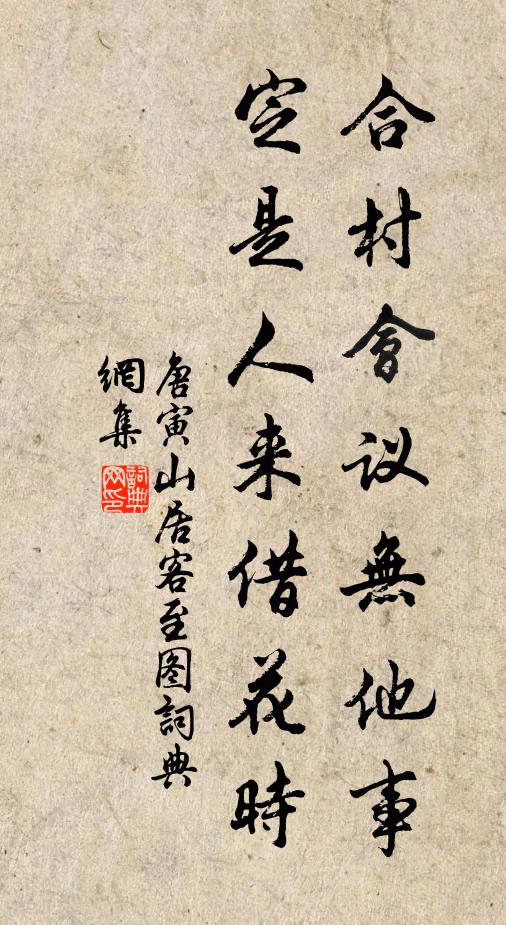 合村會议無他事
定是人来借花時
唐寅山居客至图詞典
網集
詞典
网印